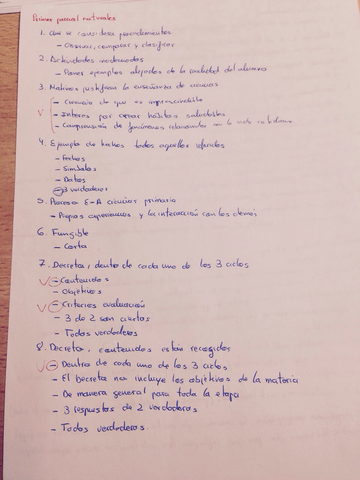 Primer parcial naturales
1. Que se considera procedimientos
- Observar, comparar y clasificar
2. Actividades inadecuadas
- Poner ejemplos alejados de la realidad del alumno
3. Motivos justifican la enseñanza de ciencias
- Conciencia de que es imprescindible
- Interes por crear hábitos saludables
- Comprensión de fenómenos relacionados con la vida cotidiana
4. Ejemplo de hechos todos aquellos referidos
- Fechas
- Simbolos
- Datos
- 3 verdaderas
5. Proceso E-A ciencias primaria
- Propias experiencias y la interacción con los demás
6. Fungible
- Carta
7. Decretos, dentro de cada uno de los 3 ciclos
V - Contenidos
- Objetivos
V - Criterios evaluación
- 3 de 2 son ciertas
- Todas verdaderas
8. Decreto, contenidos están recogidos
V - Dentro de cada uno de los 3 ciclos
- El Decreto no incluye los objetivos de la materia
- De manera general para toda la etapa
- 3 respuestas de 2 verdaderas
- Todas verdaderas.